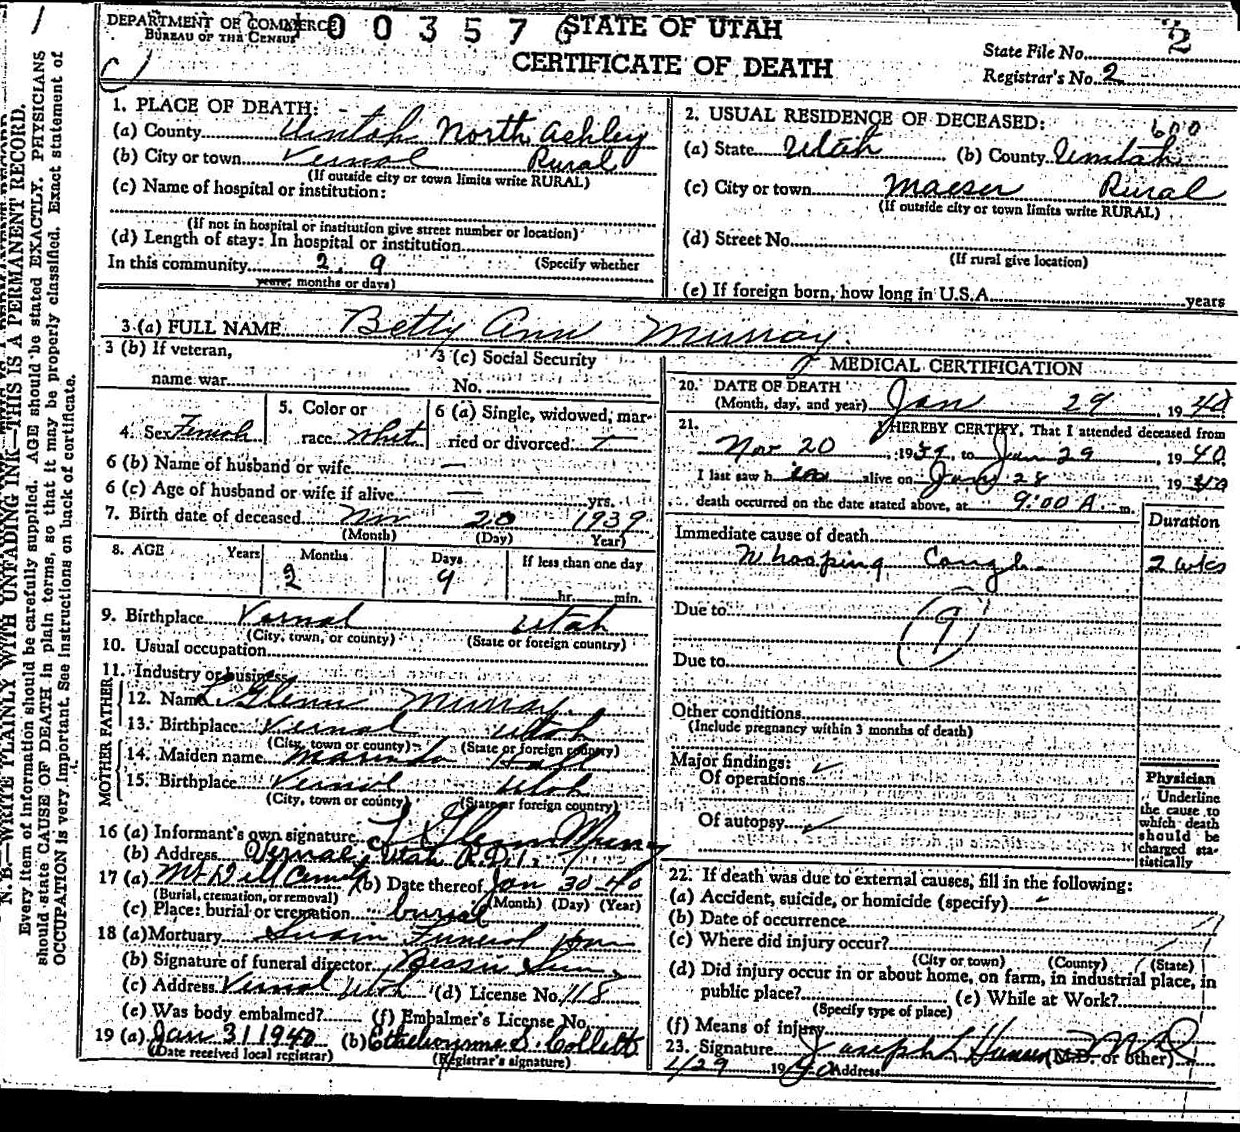 DEPARTMENT OF COMMERCE
BUREAU OF THE CENSUS
100357
STATE OF UTAH
CERTIFICATE OF DEATH
State File No. 2
Registrar's No. 2
N. B.—WRITE PLAINLY WITH UNFADING INK—THIS IS A PERMANENT RECORD.
Every item of information should be carefully supplied. AGE should be stated EXACTLY. PHYSICIANS
should state CAUSE OF DEATH in plain terms, so that it may be properly classified. Exact statement of
OCCUPATION is very important. See instructions on back of certificate.
1. PLACE OF DEATH:
(a) County Uintah North Ashley
(b) City or town Vernal Rural
(If outside city or town limits write RURAL)
(c) Name of hospital or institution:
(If not in hospital or institution give street number or location)
(d) Length of stay: In hospital or institution
In this community 2 9 (Specify whether
years, months or days)
2. USUAL RESIDENCE OF DECEASED: 600
(a) State Utah (b) County Uintah
(c) City or town Maeser Rural
(If outside city or town limits write RURAL)
(d) Street No.
(If rural give location)
(e) If foreign born, how long in U.S.A. years
3 (a) FULL NAME Betty Ann Murray
3 (b) If veteran,
name war
3 (c) Social Security
No.
4. Sex Female
5. Color or
race White
6 (a) Single, widowed, mar-
ried or divorced
6 (b) Name of husband or wife —
6 (c) Age of husband or wife if alive — yrs.
7. Birth date of deceased Nov 20 1939
(Month) (Day) Year)
8. AGE Years Months Days If less than one day
2 9 hr. min.
9. Birthplace Vernal Utah
(City, town, or county) (State or foreign country)
10. Usual occupation
11. Industry or business
FATHER
12. Name L. Glenn Murray
13. Birthplace Vernal Utah
(City, town or county) (State or foreign country)
MOTHER
14. Maiden name Marinda Hall
15. Birthplace Vernal Utah
(City, town or county) (State or foreign country)
16 (a) Informant's own signature L Glenn Murray
(b) Address Vernal, Utah R.D.1.
17 (a) (b) Date thereof Jan 30 40
(Burial, cremation, or removal) (Month) (Day) (Year)
(c) Place: burial or cremation burial
18 (a) Mortuary Swain Funeral Home
(b) Signature of funeral director Bessie Swain
(c) Address Vernal Utah (d) License No. 118
(e) Was body embalmed? (f) Embalmer's License No.
19 (a) Jan 31 1940 (b) S. Collett
(Date received local registrar) (Registrar's signature)
MEDICAL CERTIFICATION
20. DATE OF DEATH
(Month, day, and year) Jan 29, 1940
21. I HEREBY CERTIFY, That I attended deceased from
Nov 20, 1939, to Jan 29, 1940.
I last saw h alive on Jan 28 1940
death occurred on the date stated above, at 9:00 A. m.
Duration
Immediate cause of death
Whooping Cough 2 wks
Due to (9)
Due to
Other conditions
(Include pregnancy within 3 months of death)
Major findings:
Of operations
Of autopsy
Physician
Underline
the cause to
which death
should be
charged sta-
tistically
22. If death was due to external causes, fill in the following:
(a) Accident, suicide, or homicide (specify) -
(b) Date of occurrence
(c) Where did injury occur?
(City or town) (County) (State)
(d) Did injury occur in or about home, on farm, in industrial place, in
public place? (e) While at Work?
(Specify type of place)
(f) Means of injury
23. Signature Joseph L (M.D. or other) MD
1/29 1940 Address